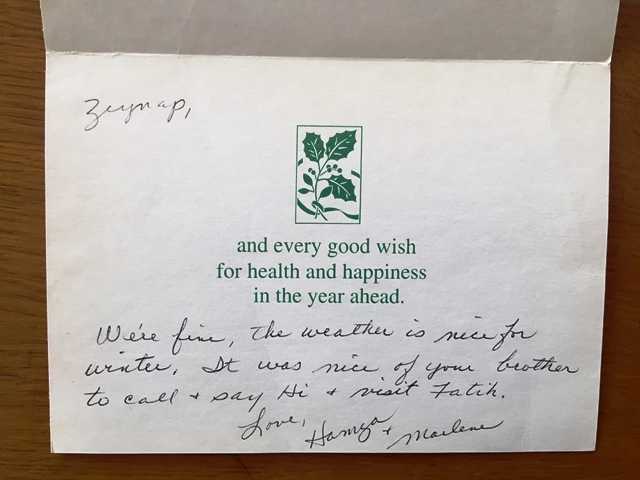 Zeynap,
and every good wish
for health and happiness
in the year ahead.
We're fine, the weather is nice for
winter. It was nice of your brother
to call + say Hi + visit Fatih.
Love,
Hamza + Marlene